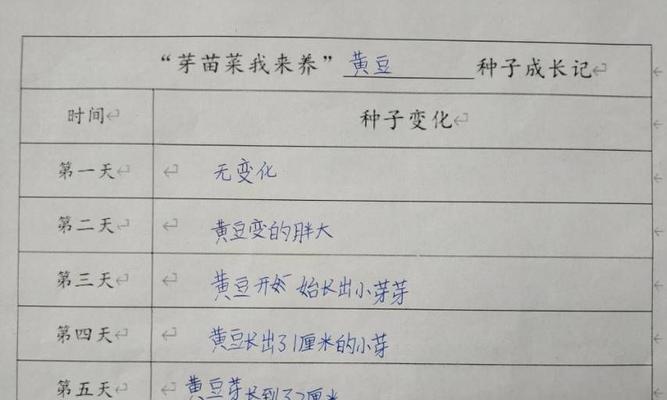 “芽苗菜我来养” 黄豆 种子成长记
时间 种子变化
第一天 无变化
第二天 黄豆变的胖大
第三天 黄豆开始长出小芽芽
第四天 黄豆长出了1厘米的小芽
第五天 黄豆芽长到了2厘米